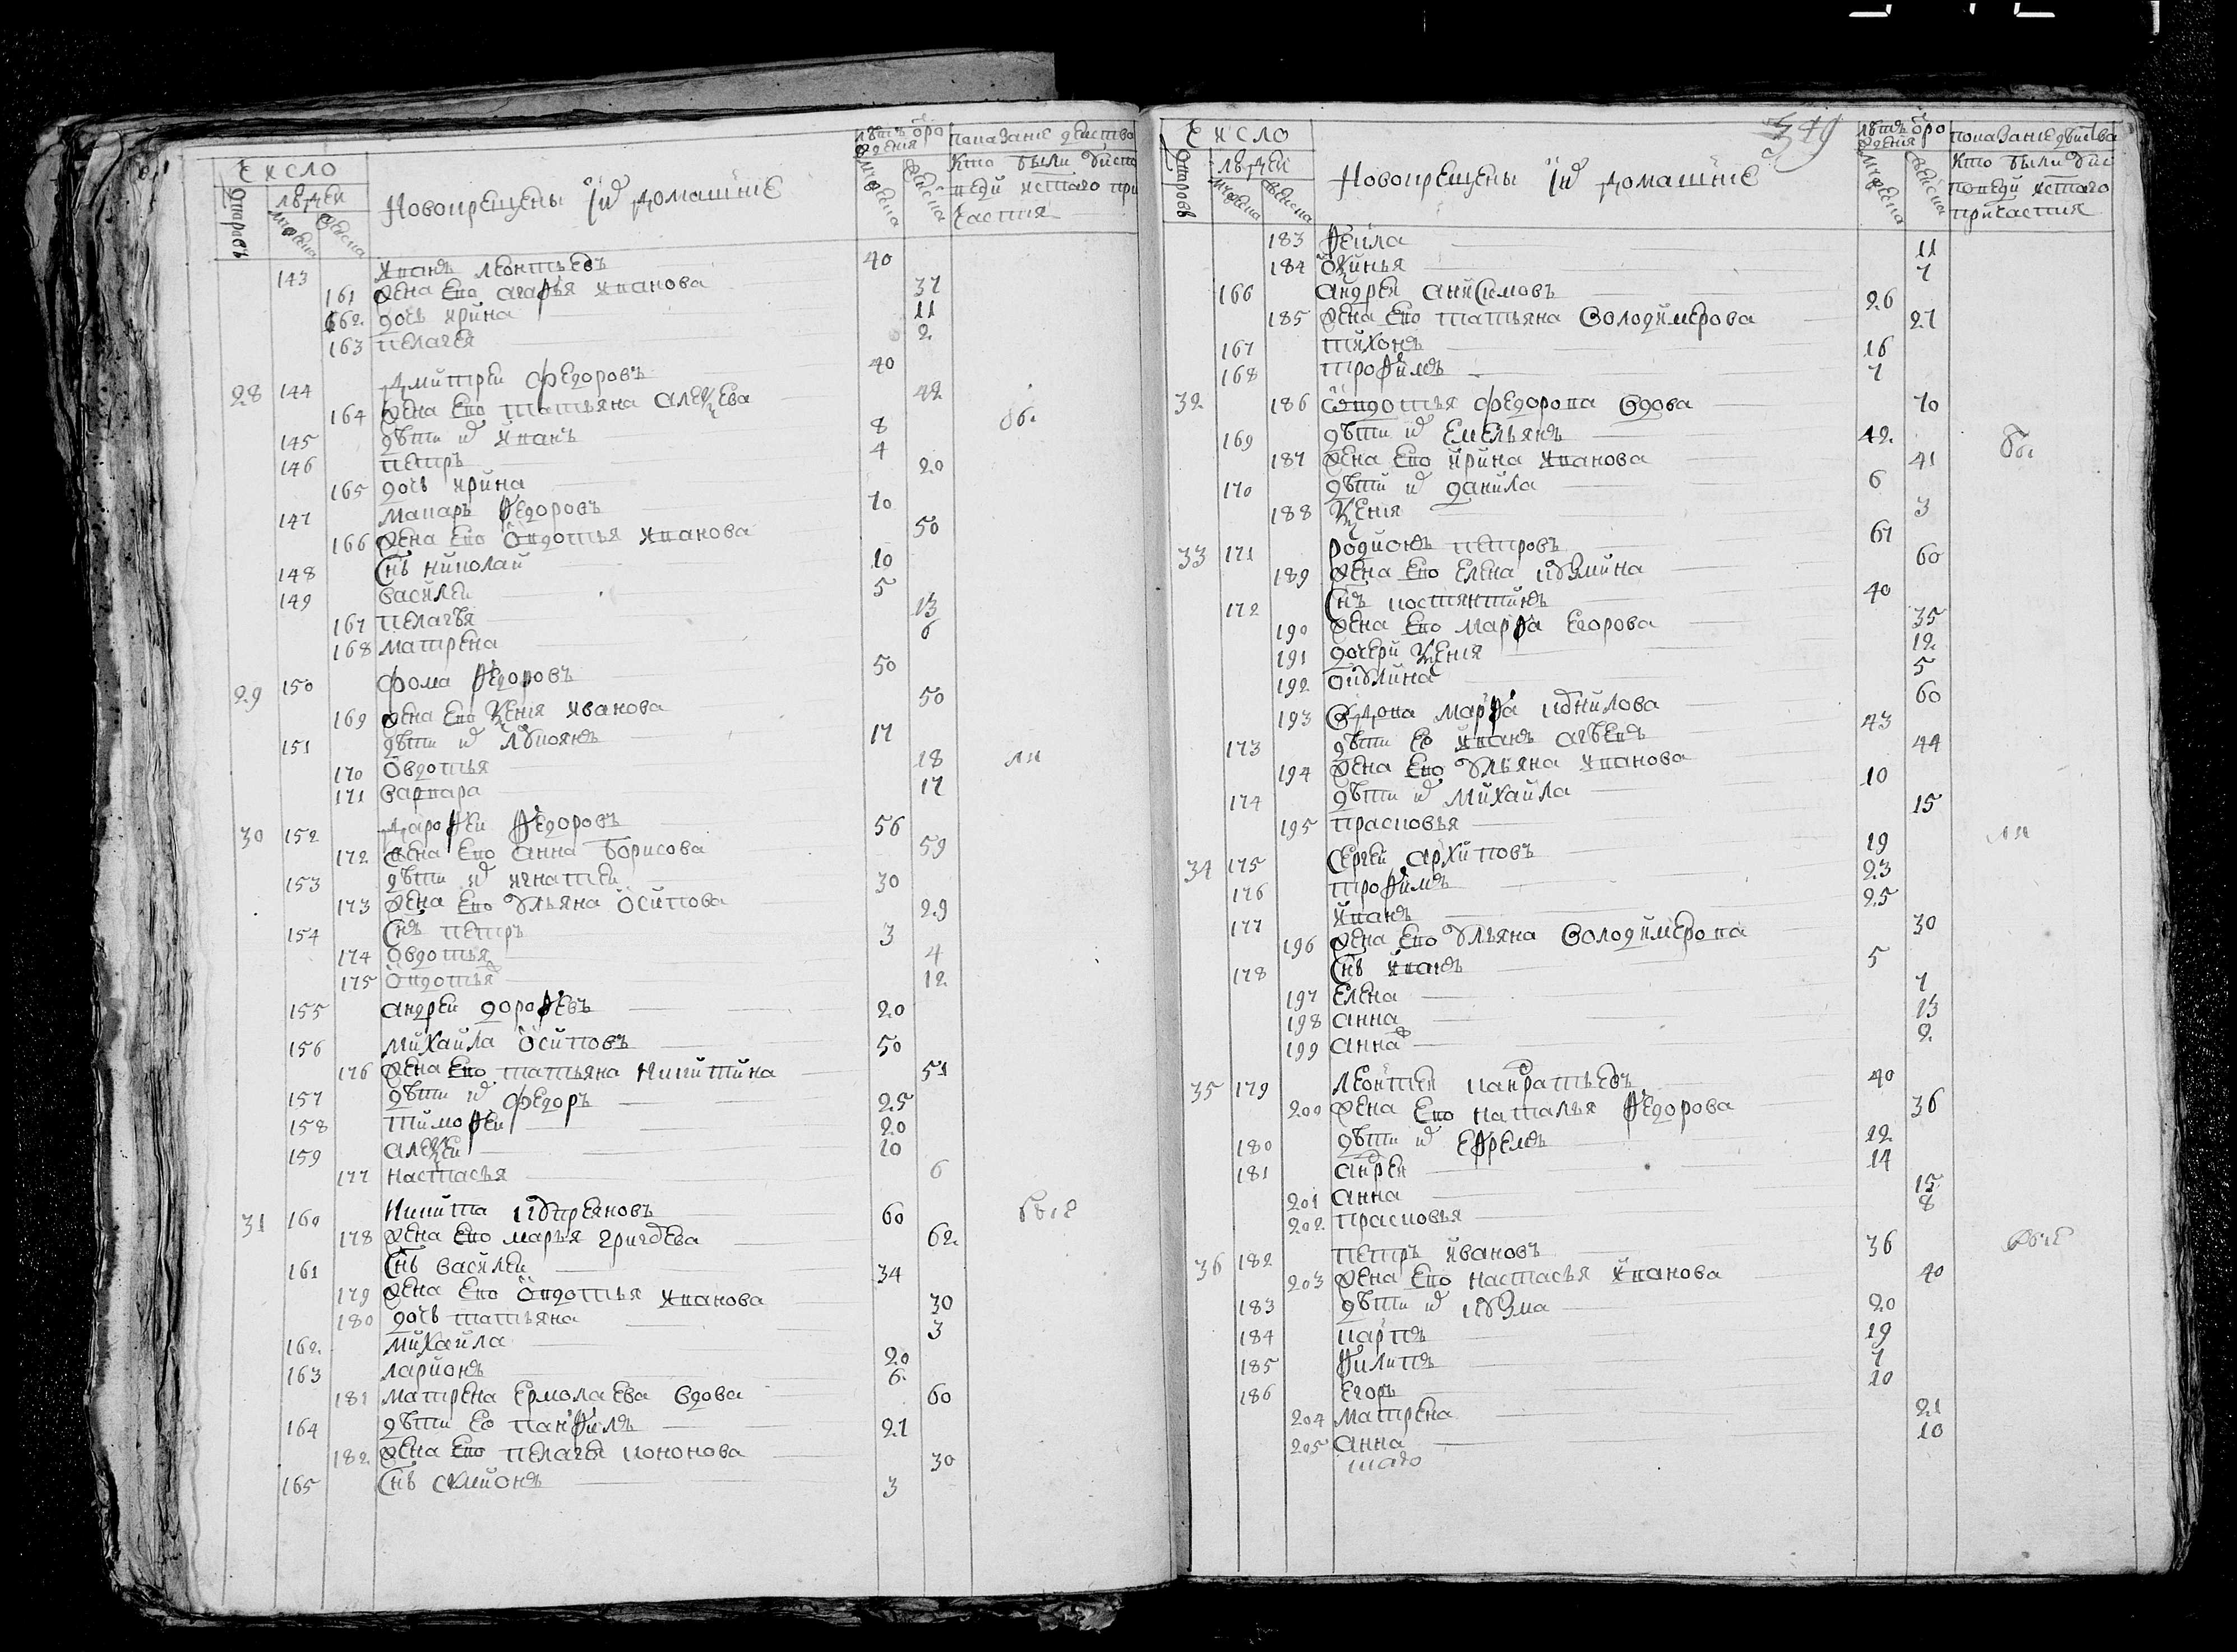 Число
людей
Дворовъ
мужеска
женска
Новокрещены ихъ домашние
лѣтъ от ро
ждения
мужеска
женска
показание действа
кто были у испо
веди истаго при
частия
143 Иванъ леонтьевъ 40
161 жена Ево агафья Иванова 37
162 дочь ирина 11
163 пелагея 2
28 144 Дмитреи федоровъ 40
164 жена Ево татьяна алеѯева 42
145 дѣти их Иванъ 8
146 петръ 4
165 дочь ирина 20
147 макаръ ѳедоровъ 70
166 жена Ево Овдотья Иванова 50
148 Снъ николай 10
149 василеи 5
167 пелагѣя 13
168 матрена 6
29 150 фома ѳедоровъ 50
169 жена Ево ѯения Иванова 50
151 дѣти их лукоянъ 17
170 Овдотья 18 ли
171 варвара 17
30 152 Дароѳеи ѳедоровъ 56
172 жена Ево анна Борисова 59
153 дѣти их игнатеи 30
173 жена Ево Ульяна Осипова 29
154 Снъ петръ 3
174 Овдотья 4
175 Овдотья 12
155 андреи дороѳѣевъ 20
156 михаила Осиповъ 50
176 жена Ево татьяна никитина 51
157 дѣти их федоръ 25
158 тимоѳеи 20
159 алеѯеи 10
177 настасья 6
31 160 никита куприяновъ 60
178 жена Ево марья 62
161 Снъ василеи 34
179 жена Ево Овдотья Иванова 30
180 дочь татьяна 3
162 михаила 20
163 ларионъ 6
181 матрена Ермолаева вдова 60
164 дѣти Ее панѳилъ 21
182 жена Ево пелагея кононова 30
165 Снъ симионъ 3
349
Число
людей
Дворовъ
мужеска
женска
Новокрещены их домашние
лѣтъ от ро
ждения
мужеска
женска
показание дѣиства
кто были у ис
поведи истаго
причастия
183 ѳекла 11
184 Окинья 7
166 андреи анисимовъ 26
185 жена Ево татьяна володимерова 27
167 тихонъ 16
168 троѳимъ 7
32 186 Овдотья федорова вдова 70
169 дѣти их Емельянъ 42
187 жена Ево ирина Иванова 41
170 дѣти их данила 6
188 ѯения 3
33 171 родионъ петровъ 67
189 жена Ево Елена кузмина 60
172 Снъ костянтинъ 40
190 жена Ево марѳа Егорова 35
191 дочери ѯения 12
192 Окулина 5
193 вдова марѳа 60
173 дѣти Ее Иванъ 43
194 жена Ево Ульяна Иванова 44
174 дѣти их михаила 10
195 прасковья 15
34 175 Сергеи архиповъ 19 ли
176 троѳимъ 23
177 Иванъ 25
196 жена Ево Ульяна володимерова 30
178 Снъ Иванъ 5
197 Елена 7
198 анна 13
199 анна 2
35 179 леонтеи панратьевъ 40
200 жена Ево наталья ѳедорова 36
180 дѣти их Еѳремъ 12
181 андреи 14
201 анна 15
202 прасковья 8
36 182 петръ Ивановъ 36
203 жена Ево настасья Иванова 40
183 дѣти их кузма 20
184 карпъ 19
185 ѳилипъ 7
186 Егоръ 10
204 матрена 21
205 анна 10